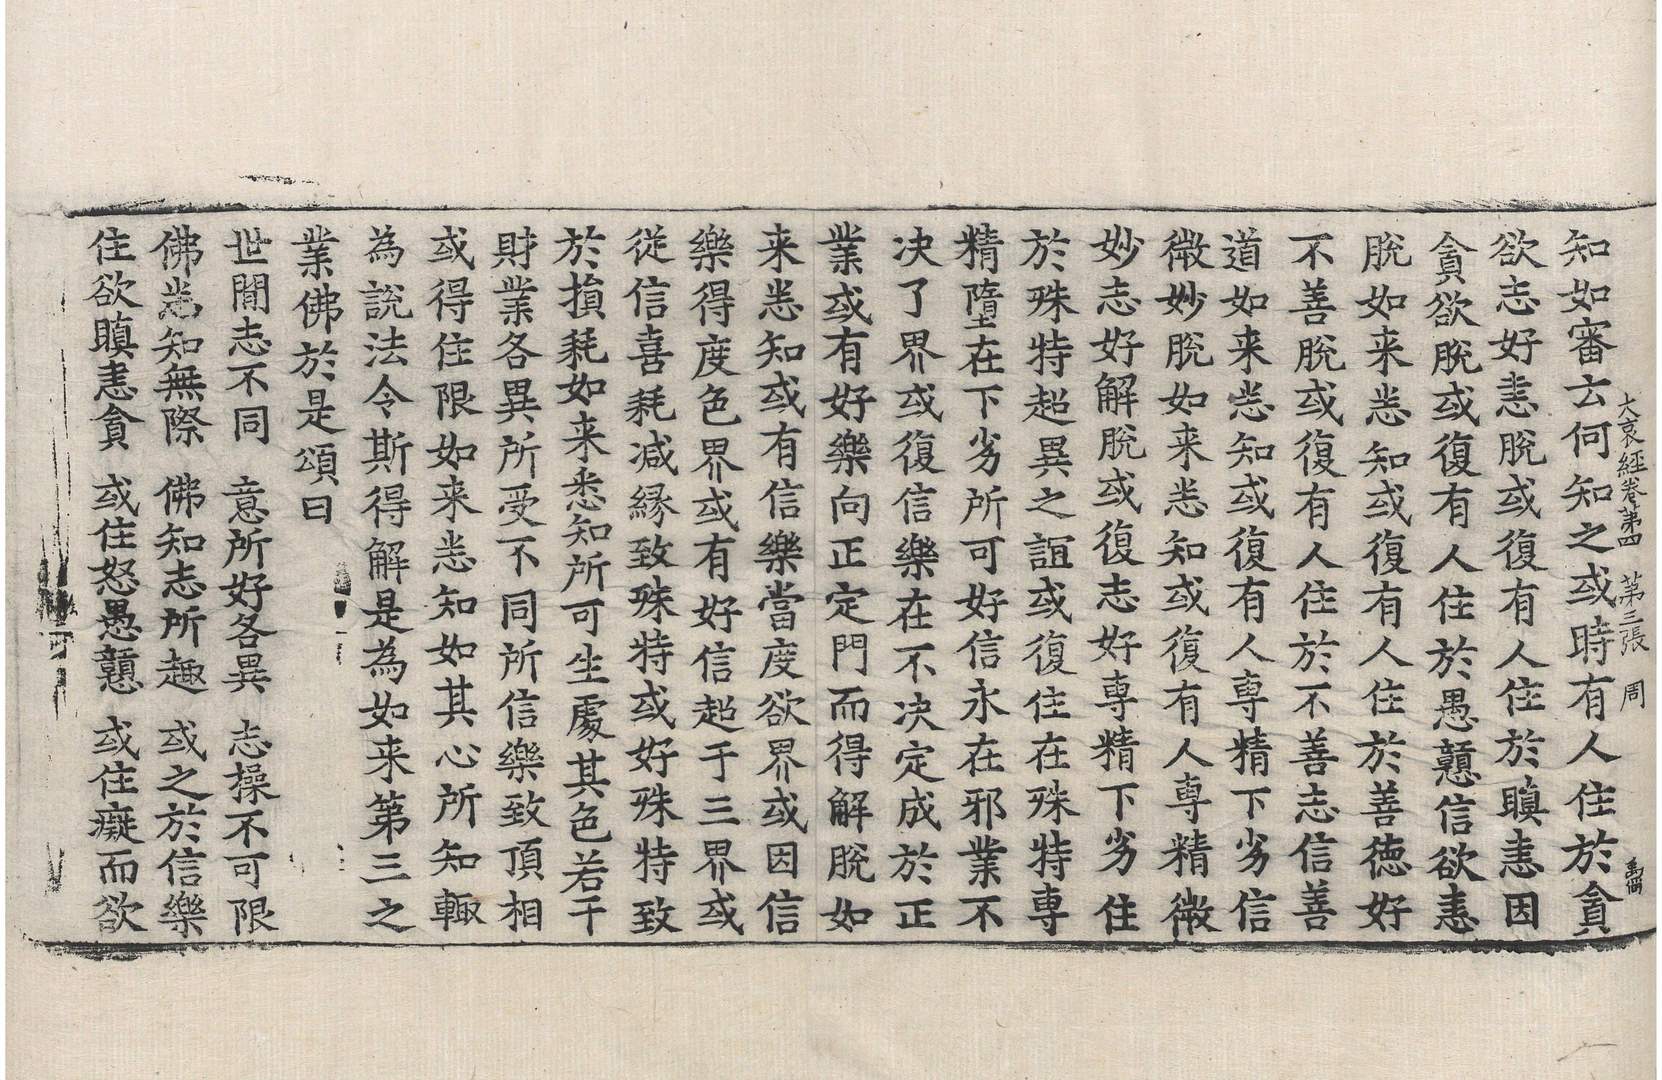 大哀經卷第四 第三張 周
知如審云何知之或時有人住於貪
欲志好恚脫或復有人住於瞋恚因
貪欲脫或復有人住於愚戇信欲恚
脫如来悉知或復有人住於善德好
不善脫或復有人住於不善志信善
道如来悉知或復有人専精下劣信
微妙脫如来悉知或復有人専精微
妙志好解脫或復志好専精下劣住
於殊特超異之誼或復住在殊特専
精墮在下劣所可好信永在邪業不
决了界或復信樂在不决定成於正
業或有好樂向正定門而得解脫如
来悉知或有信樂當度欲界或因信
樂得度色界或有好信超于三界或
從信喜耗减縁致殊特或好殊特致
於損耗如来悉知所可生處其色若干
財業各異所受不同所信樂致頂相
或得住限如来悉知如其心所知輙
為說法令斯得解是為如来第三之
業佛於是頌曰
世間志不同 意所好各異 志操不可限
佛悉知無際 佛知志所趣 或之於信樂
住欲瞋恚貪 或住怒愚戇 或住癡而欲